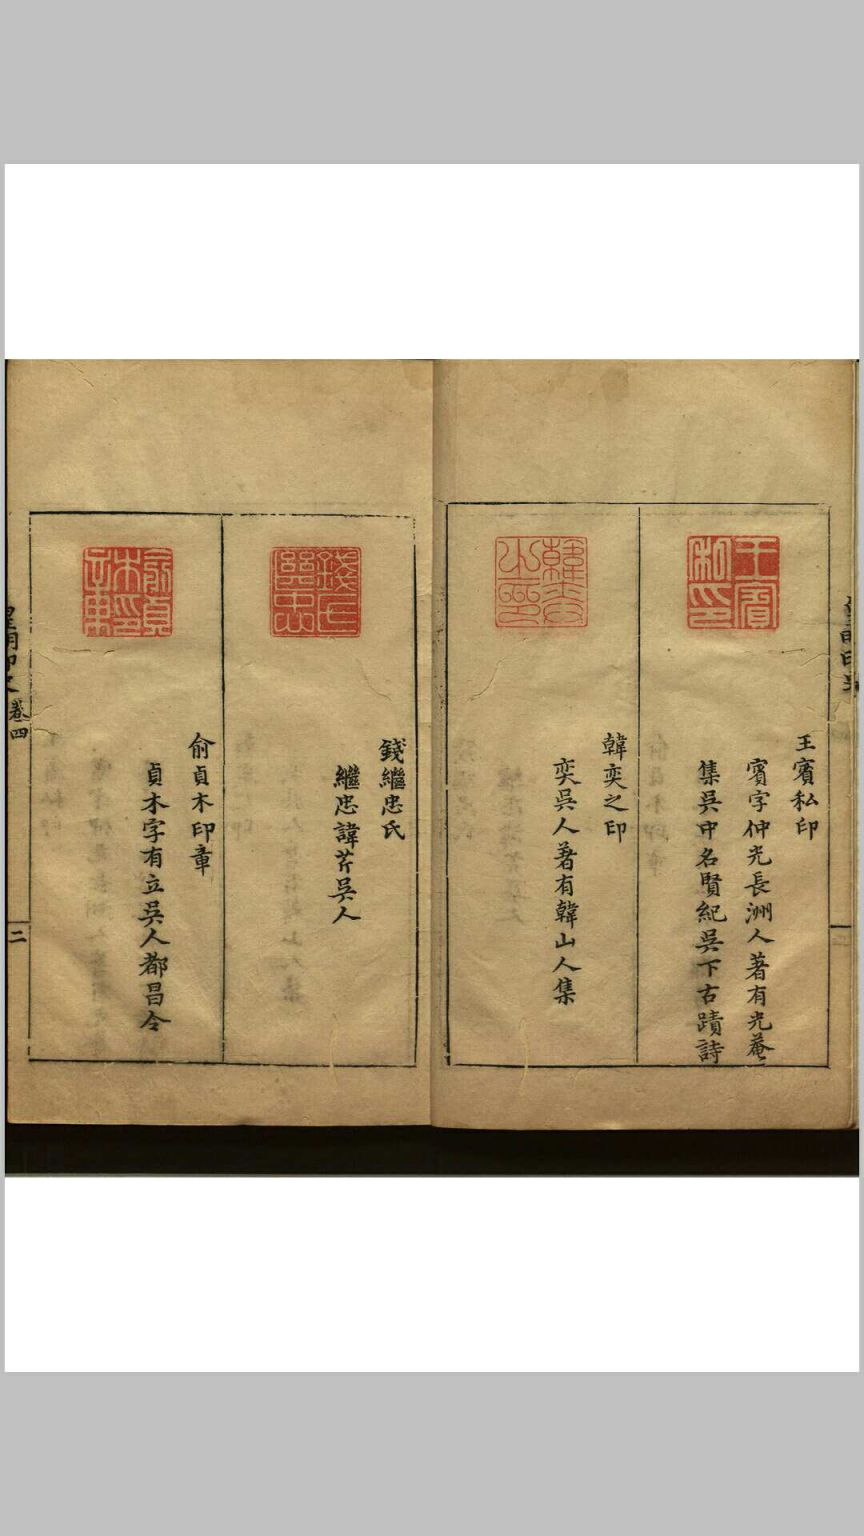 王賓私印
王賓私印
賓字仲光長洲人著有光菴
集吳中名賢紀吳下古蹟詩
韓奕之印
韓奕之印
奕吳人著有韓山人集
錢氏繼忠
錢繼忠氏
繼忠諱芹吳人
俞貞木印章
俞貞木印章
貞木字有立吳人都昌令
卷四
二